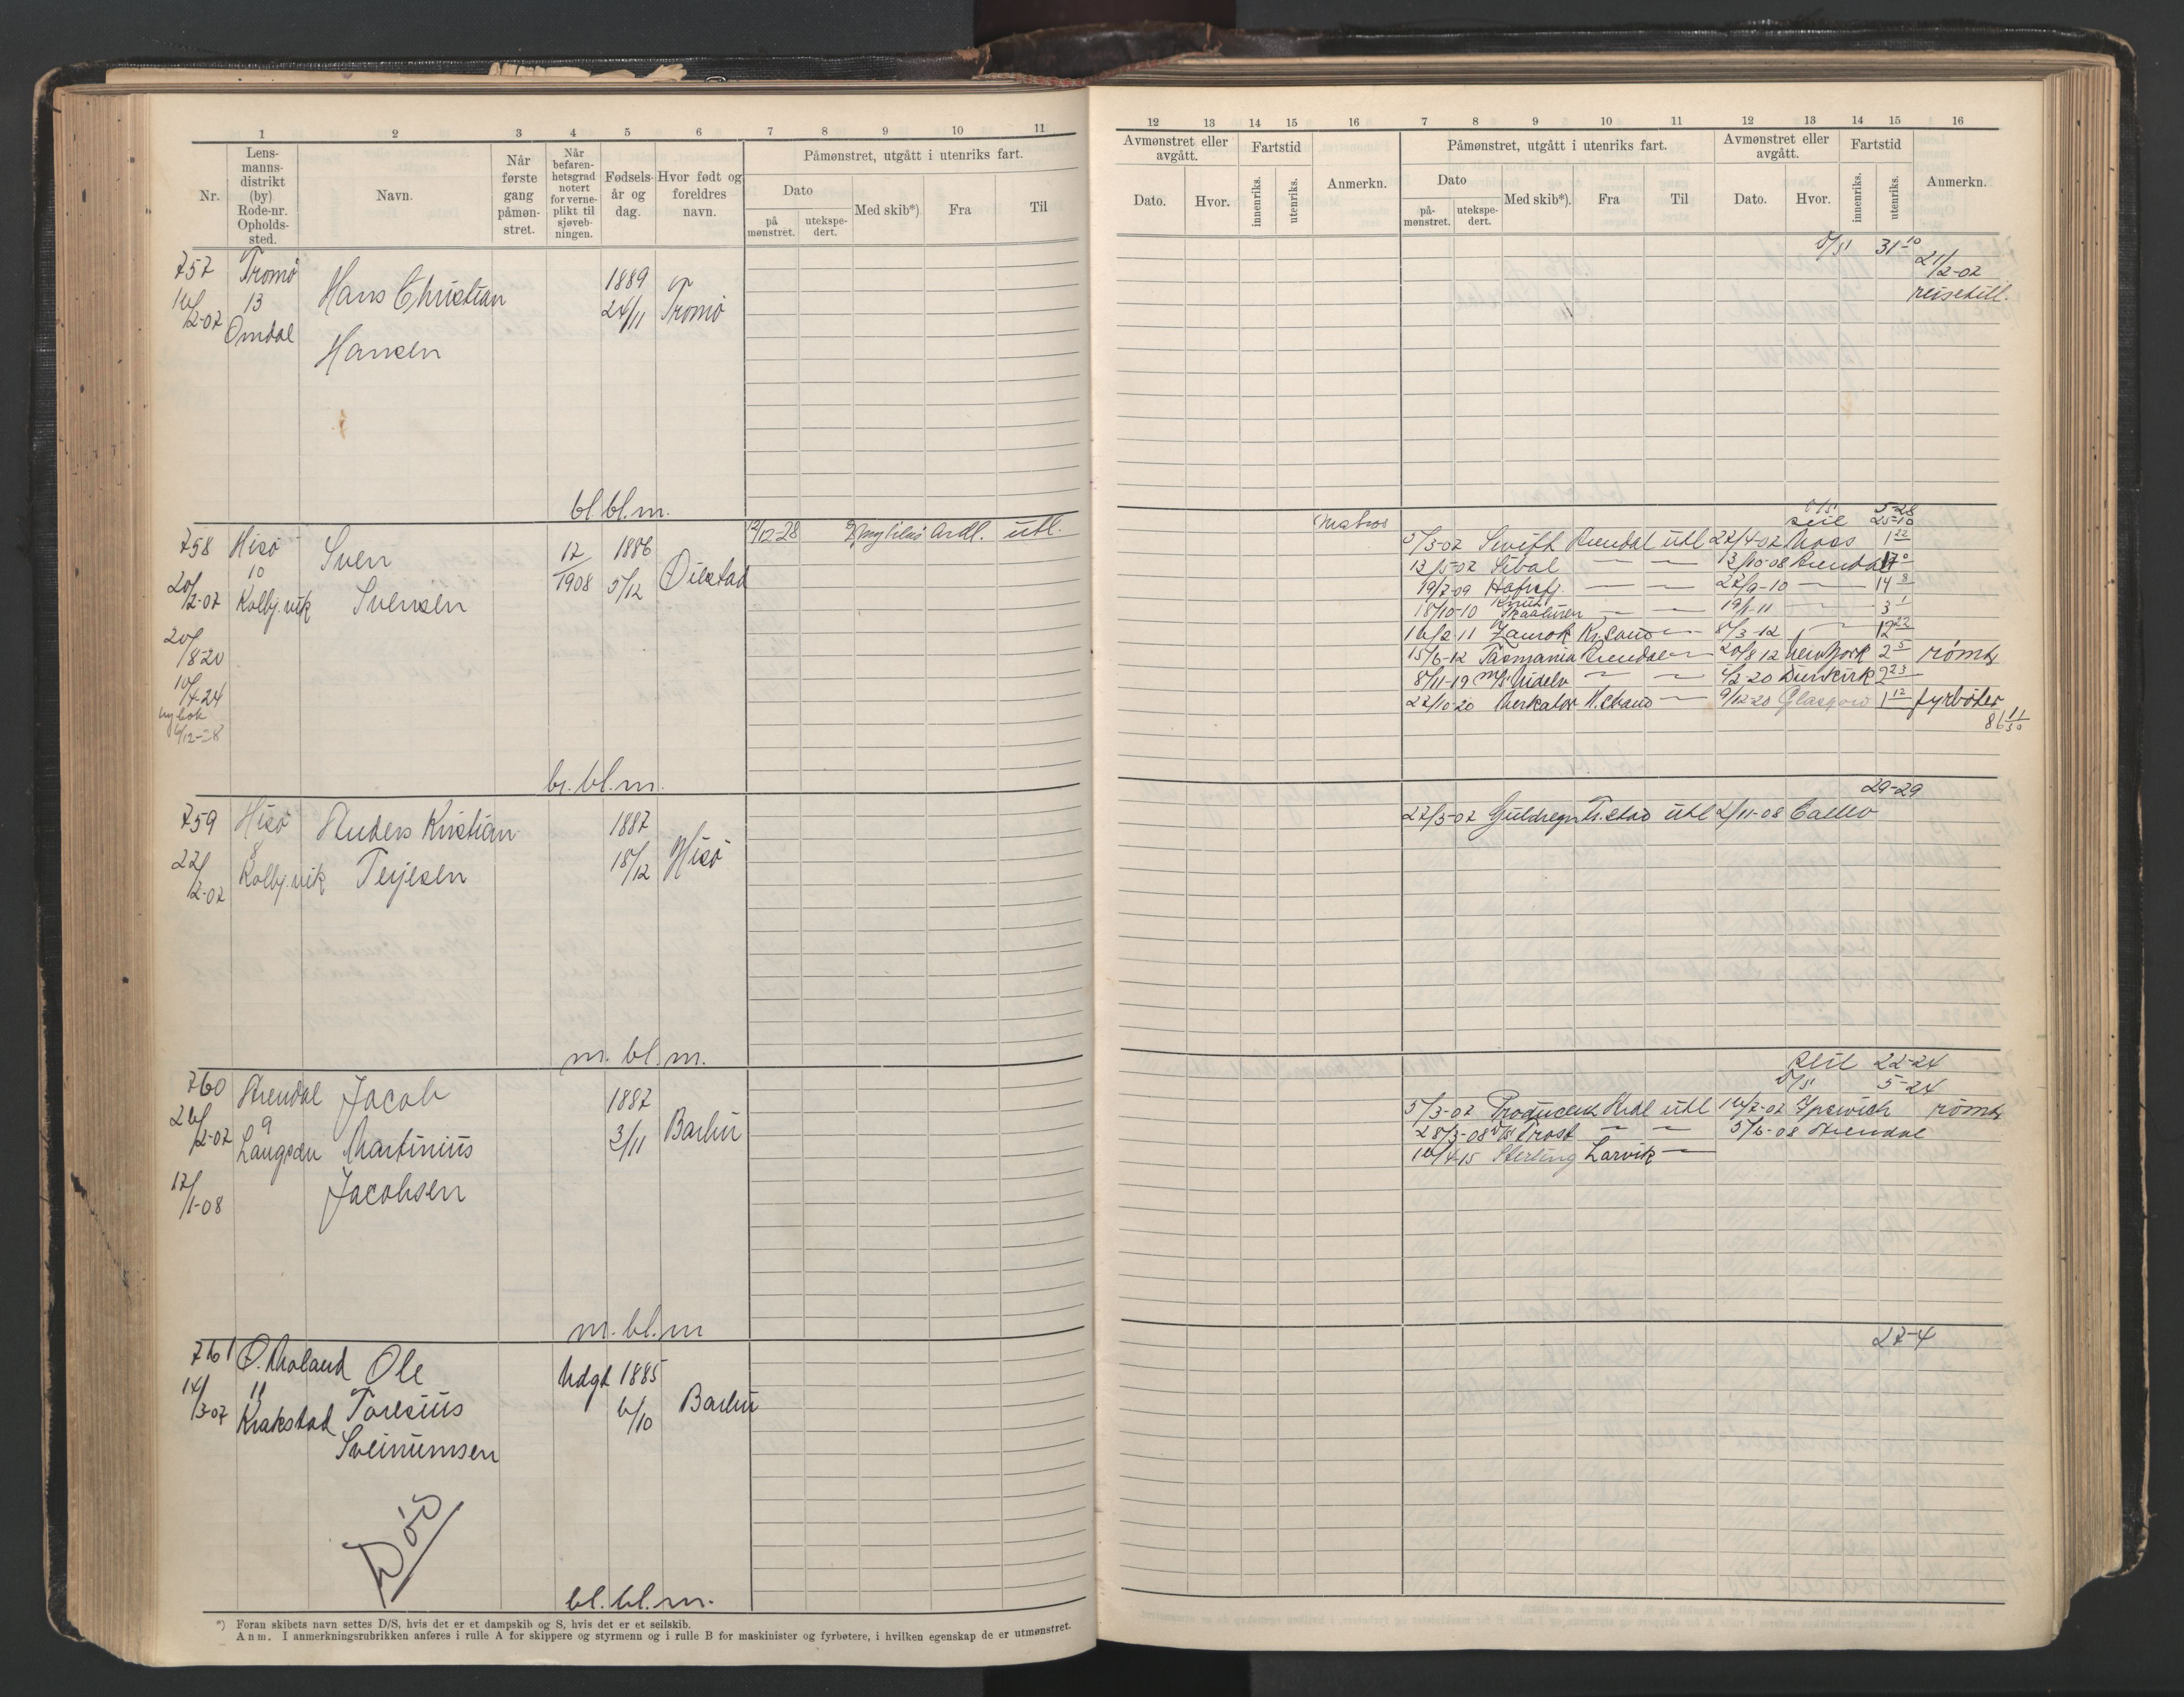 1 2 3 4 5 6 7 8 9 10 11
Nr.
Lens-
manns-
distrikt
(by)
Rode-nr.
Opholds-
sted.
Navn.
Når
første
gang
påmøn-
stret.
Når
befaren-
hetsgrad
notert
for verne-
plikt til
sjøveb-
ningen.
Fødsels-
år og
dag.
Hvor født og
foreldres
navn.
Påmønstret, utgått i utenriks fart.
Dato
på
mønstret.
utekspe-
dert.
Med skib*)
Fra
Til
757 Tromø
13
Omdal
16/2-07
Hans Christian
Hansen
1889
24/11
Tromø
bl. bl. m.
758 Hisø
10
Kolbj.vik
20/2-07
20/8-20
10/4-24
ny bok
6/12-28
Sven
Svensen
17/1908
1886
5/12
Øiestad
12/12-28 Ardl. utl.
bl. bl. m.
759 Hisø
8
Kolbj.vik
22/2-07
Anders Kristian
Terjesen
1887
18/12
Hisø
m. bl. m.
760 Arendal
9
Langsæ
26/2-07
17/1-08
Jacob
Martinius
Jacobsen
1887
3/11
Barbu
m. bl. m
761 Ø. Moland
11
Krakstad
14/3-07
Ole
Toresius
Sveinumsen
Udgt 1885
6/10
Barbu
Død
bl. bl. m.
*) Foran skibets navn settes D/S, hvis det er et dampskib og S, hvis det er et seilskib.
Anm. I anmerkningsrubrikken anføres i rulle A for skippere og styrmenn og i rulle B for maskinister og fyrbøtere, i hvilken egenskap de er utmønstret.
12 13 14 15 16 7 8 9 10 11 12 13 14 15 16
Avmønstret eller
avgått.
Dato. Hvor.
Fartstid
innenriks. utenriks.
Anmerkn.
Påmønstret, utgått i utenriks fart.
Dato
på-
mønstret.
utekspe-
dert.
Med skib*). Fra Til
Avmønstret eller
avgått.
Dato. Hvor.
Fartstid
innenriks. utenriks.
Anmerkn.
D/S 31-10
21/2-02
reisetill.
Matros
D/S 5-28
seil 25-10
5/3-07 Swift Arendal utl 27/4-07 Moss 1 22
13/5-07 Sibal — — 13/10-08 Arendal 17 0
19/7-09 Hafrsfj. — — 27/9-10 — 14 8
18/10-10 Knut Skaaluren — — 19/1-11 — 3 1
16/2 11 Zamok Kr.sand — 8/3-12 — 12 22
15/6-12 Tasmania Arendal — 20/8 12 New York 2 5 rømt
8/11-19 M/S Nidelv — — 1/2-20 Dunkirk 2 23
27/10-20 Merkator — 9/12-20 Glasgow 1 12 fyrbøter
29-29
27/3-07 Guldregn Fr.stad utl 2/11-08 Callao
seil 22-24
D/S 5-24
5/3-07 Producent Ardl utl 16/7-07 Ipswich rømt
28/3-08 D/S Trost — — 5/6-08 Arendal
16/4-15 Sterling Larvik —
27-4